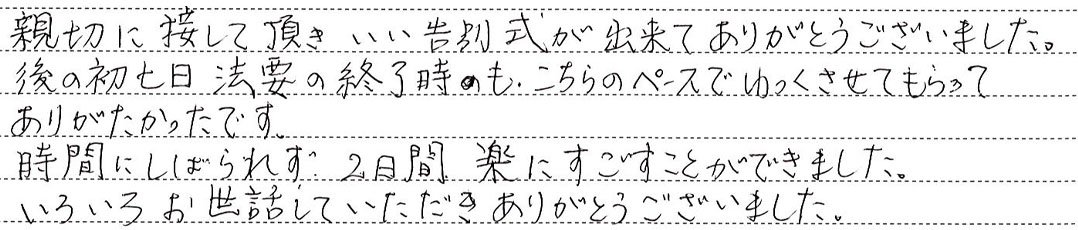 親切に接して頂き いい告別式が出来てありがとうございました。
後の初七日法要の終了時も、こちらのペースでゆっくさせてもらって
ありがたかったです。
時間にしばられず 2日間 楽にすごすことができました。
いろいろお世話していただきありがとうございました。